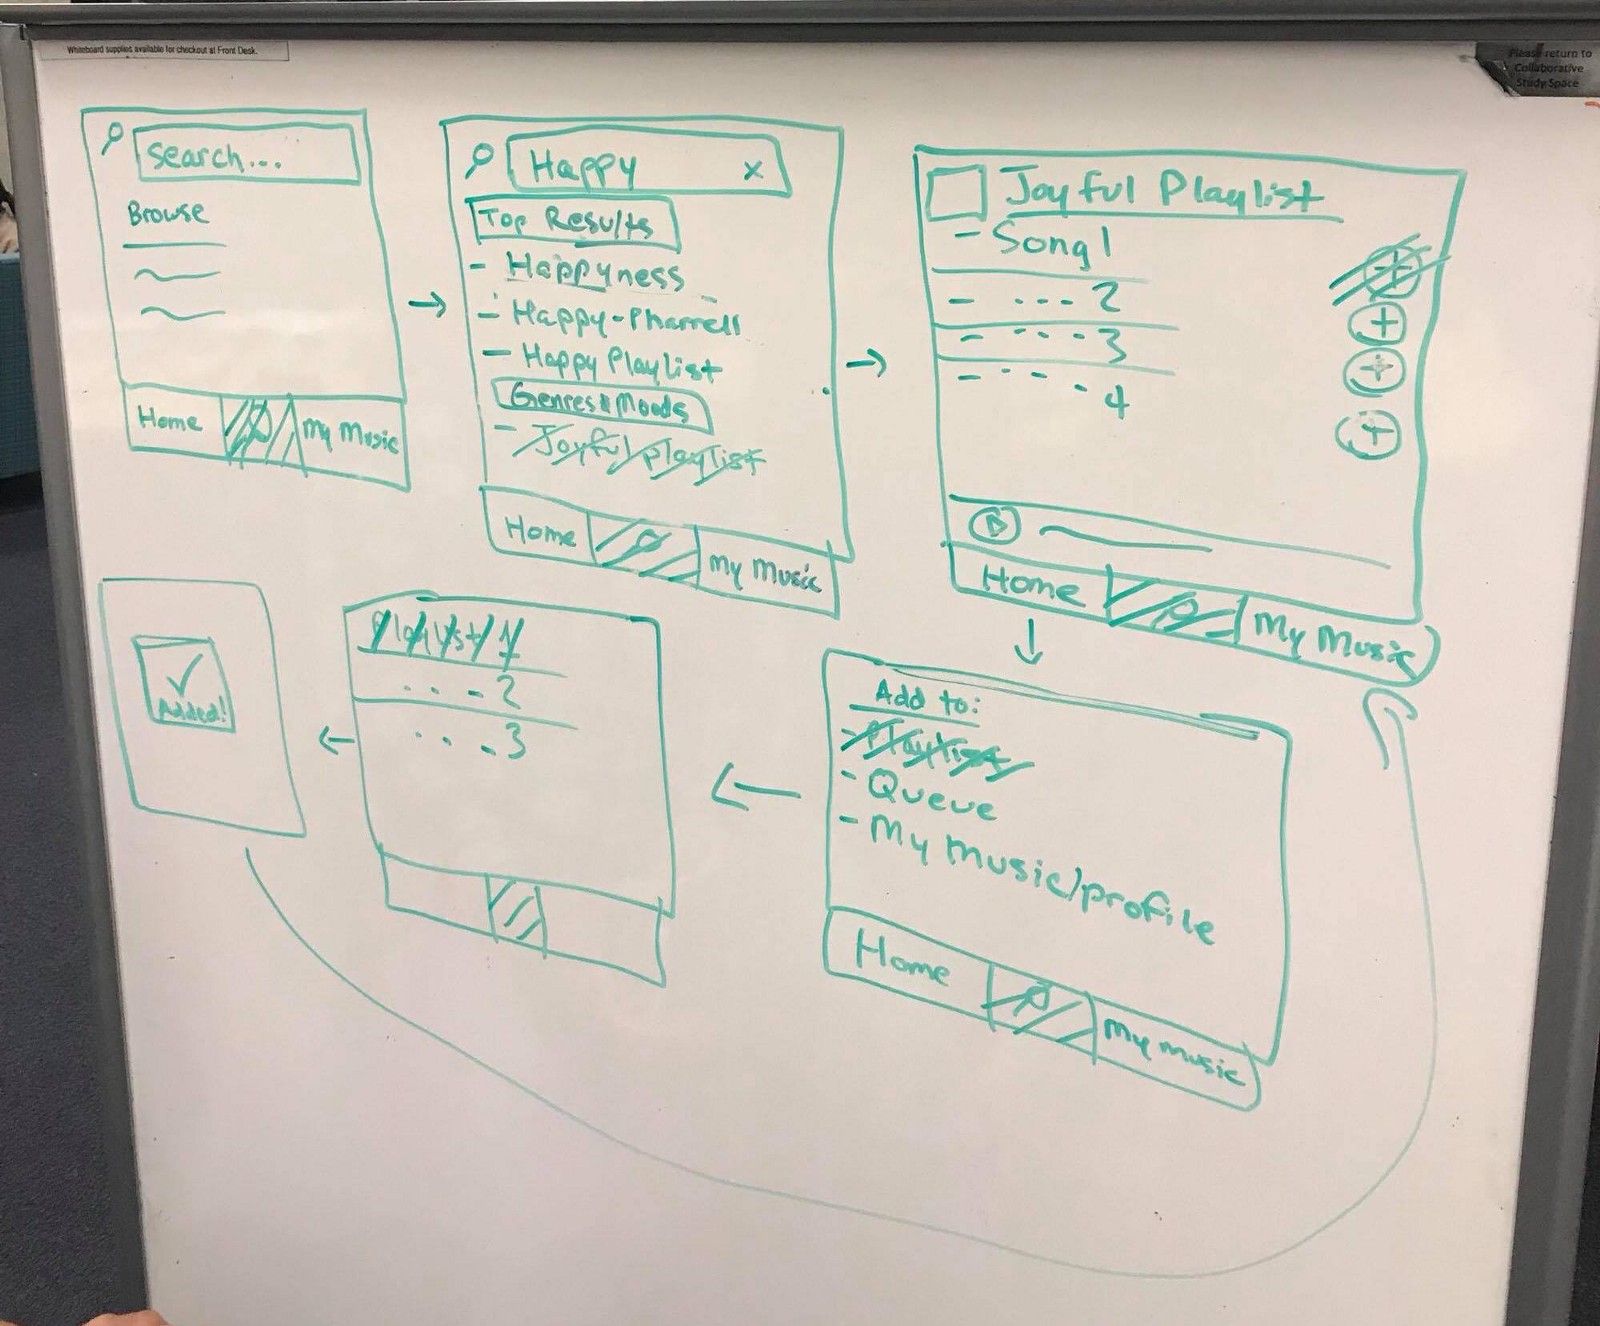 Whiteboard supplies available for checkout at Front Desk.
Please return to
Collaborative
Study Space
search...
Browse
Home
My Music
Happy x
Top Results
- Happyness
- Happy-Pharrell
- Happy Playlist
Genres & Moods
- Joyful playlist
Home
My Music
Joyful Playlist
- Song 1
- ... - 2
- ... - 3
- ... - 4
Home
My Music
Add to:
- Playlist
- Queue
- My music/profile
Home
My music
Playlist 1
... - 2
... - 3
Added!